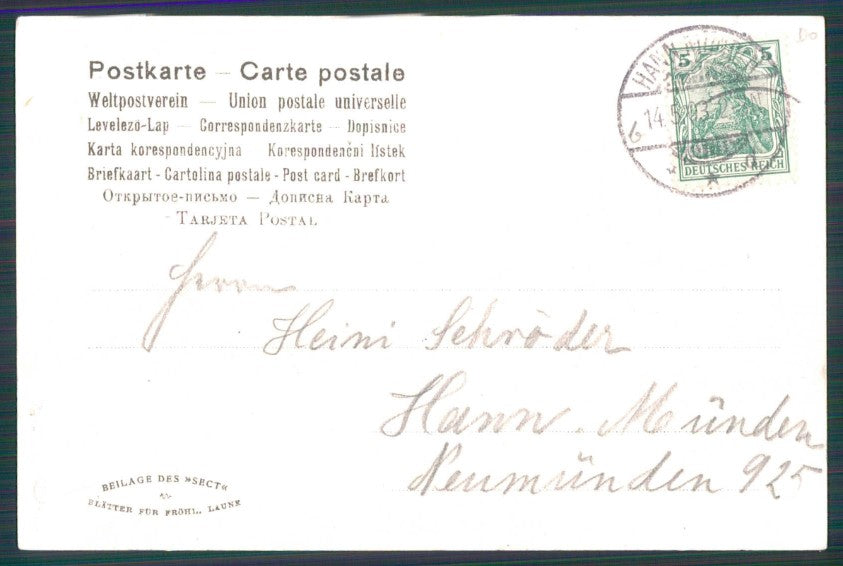 Postkarte – Carte postale
Weltpostverein — Union postale universelle
Levelező-Lap — Correspondenzkarte – Dopisnice
Karta korespondencyjna Korespondenční lístek
Briefkaart - Cartolina postale - Post card - Brefkort
Открытое-письмо — Дописна Карта
TARJETA POSTAL
5 5
DEUTSCHES REICH
HANN.
14.
Herrn
Heini Schröder
Hann. Münden
Neumünden 925
BEILAGE DES »SECT«
BLÄTTER FÜR FRÖHL. LAUNE